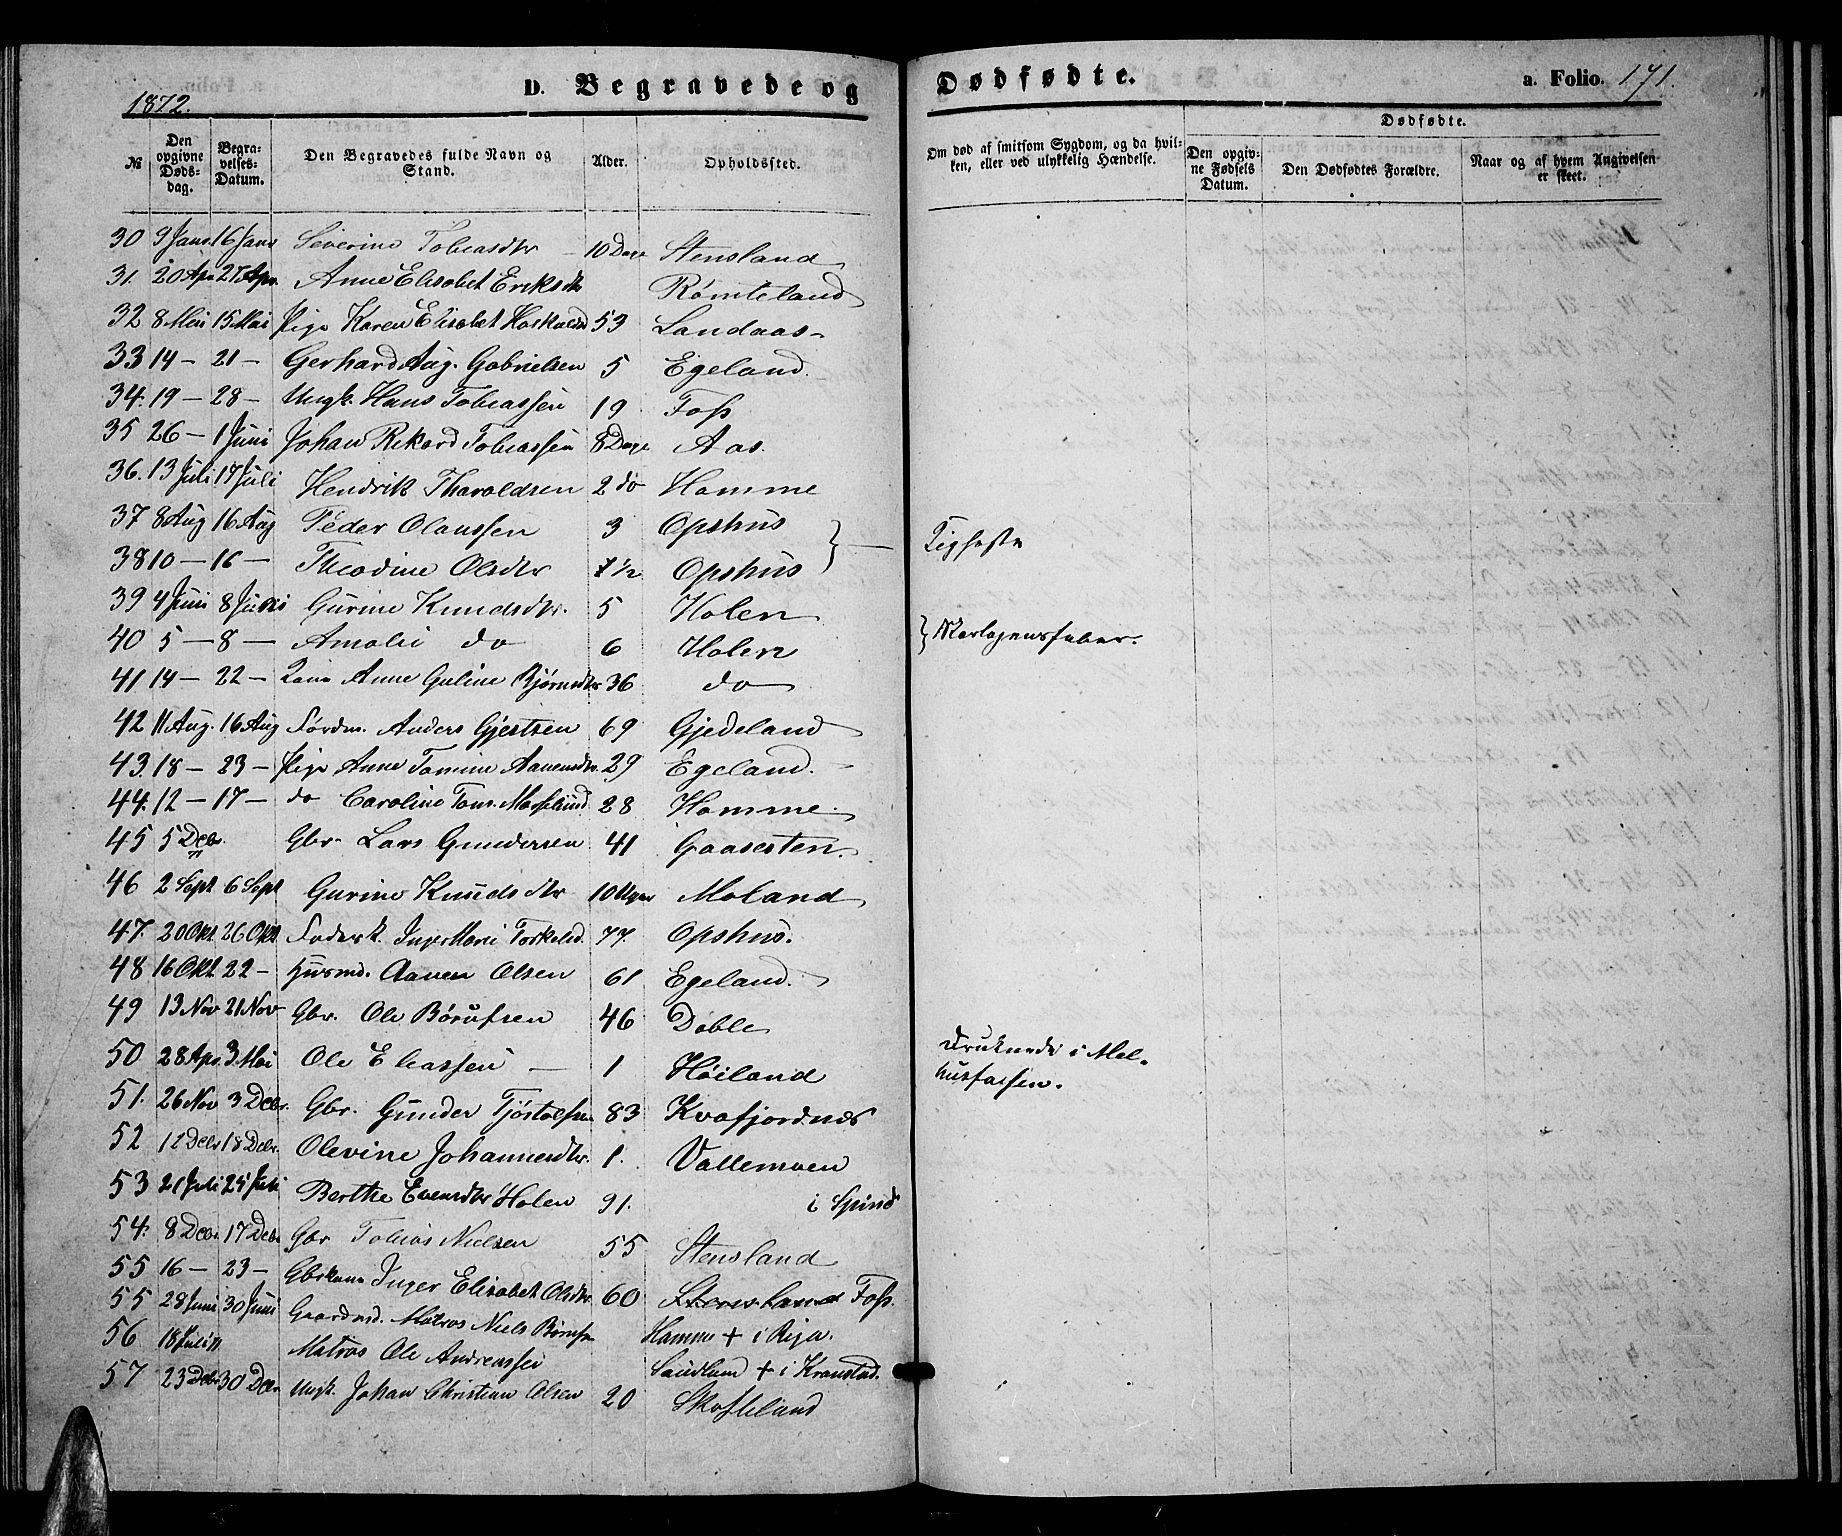 1872.
D. Begravede og Dødfødte.
a. Folio. 171.
№
Den opgivne Dødsdag.
Begravelses-Datum.
Den Begravedes fulde Navn og Stand.
Alder.
Opholdssted.
Om død af smitsom Sygdom, og da hvilken, eller ved ulykkelig Hændelse.
Dødfødte.
Den opgivne Fødsels Datum.
Den Dødfødtes Forældre.
Naar og af hvem Angivelsen er skeet.
30 9 Janr 16 Janr Severine Tobiasdtr 10 Dage Stensland
31. 20 Apr 27 Apr Anne Elisabet Eriksdtr Rømteland
32 8 Mai 15 Mai Pige Karen Elisabet 53 Landaas
33 14 – 21 – Gerhard Aug. Gabrielsen 5 Egeland
34. 19 – 28 – Ungk. Hans Tobiassen 19 Foss
35 26 – 1 Juni Johan Rikard Tobiassen 8 Dage Aas.
36. 13 Juli 17 Juli Hendrik Tharaldsen 2 do Homme
37 8 Aug 16 Aug Peder Olaussen 3 Opshus
38 10 – 16 – Theodine Olsdtr 1½ Opshus
39 4 Juni 8 Juni Gurine Knudsdtr. 5 Holen
40 5 – 8 – Amalie do 6 Holen
Skarlagensfeber.
41 14 – 22 – Kone Anne Guline Bjørnsdtr 36 do
42 11 Aug. 16 Aug Anders Gjertsen 69 Gjedeland
43. 18 – 23 – Pige Anne Tomine Aanensdtr. 29 Egeland.
44. 12 – 17 – do Caroline 28 Homme.
45 5 Debr. Gbr. Lars Gundersen 41 Gaasesten.
46 2 Sept 6 Sept Gurine Knudsdtr 10 Uger Moland
47. 20 Okt. 26 Okt Inger Marie Torkelsd. 77. Opshus.
48 16 Okt 22 – Husmd. Aanen Olsen 61 Egeland.
49 13 Nov 21 Nov Gbr. Ole Børufsen 46 Døble
50 28 Apr. 3 Mai Ole Eliassen – 1 Høiland
Druknede i Mel-
husfossen.
51. 26 Nov 3 Debr. Gbr. Gunder Tjøstolfsen 83 Kvafjordnes
52 12 Debr 18 Debr. Olevine Johannesdtr. 1. Vallemoen
53 21 Juli 25 Juli Berthe Evensdtr Holen 91. i Spind
54. 8 Debr. 17 Debr Gbr Tobias Nielsen 55 Stensland
55 16 – 23 – Gbrkone Inger Elisabet Olsdtr 60 Stensland Foss.
55 28 Juni 30 Juni Gaardmd. Matros Niels Børufsen Homme + i Riga.
56 18 Juli Matros Ole Andreassen + i Kronstad.
57 23 Debr 30 Debr Ungk. Johan Christian Olsen 20 Skofteland